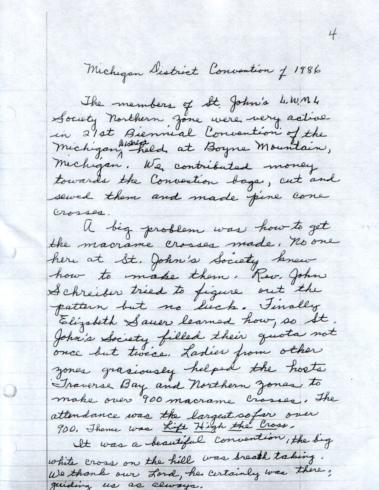 4
Michigan District Convention of 1986
The members of St. John's L.W.M.L
Society Northern Zone were very active
in 21st Biennial Convention of the
Michigan District held at Boyne Mountain,
Michigan. We contributed money
towards the Convention bags, cut and
sewed them and made pine cone
crosses.
A big problem was how to get
the macrame crosses made. No one
here at St. John's Society knew
how to make them. Rev. John
Schreiber tried to figure out the
pattern but no luck. Finally
Elizabeth Sauer learned how, so St
John's Society filled their quota not
once but twice. Ladies from other
zones grasiously helped the hosts
Traverse Bay and Northern zones to
make over 900 macrame crosses. The
attendance was the largest so far over
900. Theme was Lift High the Cross.
It was a beautiful convention, the big
white cross on the hill was breath taking.
We thank our Lord, he certainly was there,
guiding us as always.